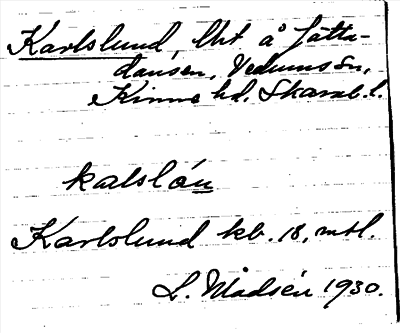 Karlslund, lht å Jätta-
dansen, Vedums sn,
Kinne hd. Skarab. l.
kalslóu
Karlslund kb. 18, mtl.
L. Mådsén 1930.